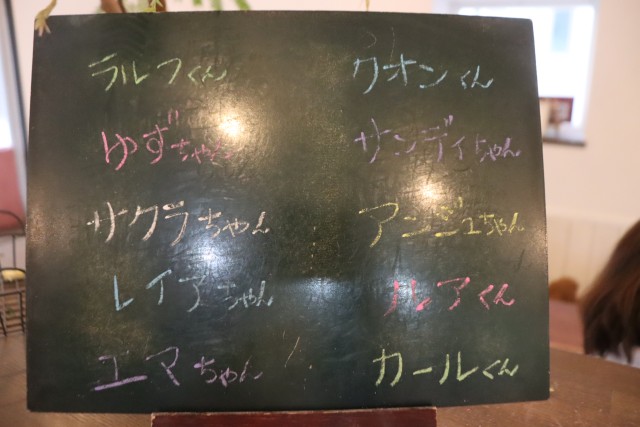 ラルフくん
ゆずちゃん
サクラちゃん
レイアちゃん
ユマちゃん
クオンくん
サンディちゃん
アンジュちゃん
ルアくん
カールくん